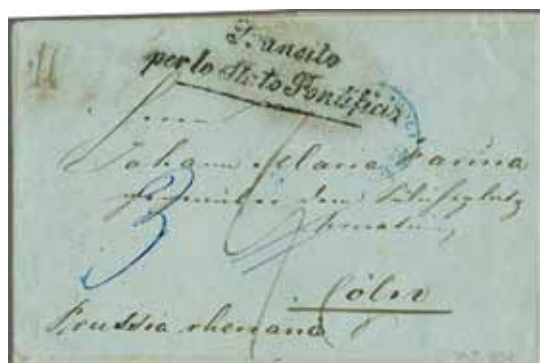 Transito
per lo Stato Pontificio
Johann Maria Farina
gegenüber dem Jülichsplatz
3
Cöln
Prussia rhenana